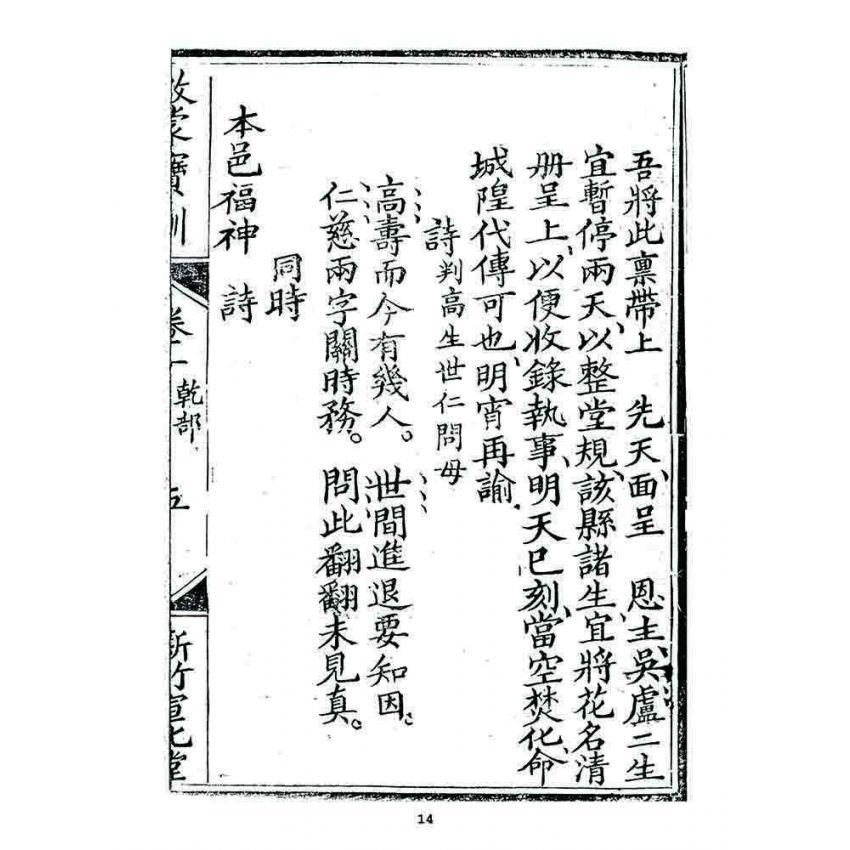 吾將此稟帶上　先天面呈　恩主吳盧二生
宜暫停兩天以整堂規該縣諸生宜將花名清
册呈上以便收錄執事明天巳刻當空焚化命
城隍代傳可也明宵再諭
詩判高生世仁問母
高壽而今有幾人。世間進退要知因。
仁慈兩字關時務。問此翻翻未見真。
同時
本邑福神　詩
寶訓
乾部
五
新竹宣化堂
14